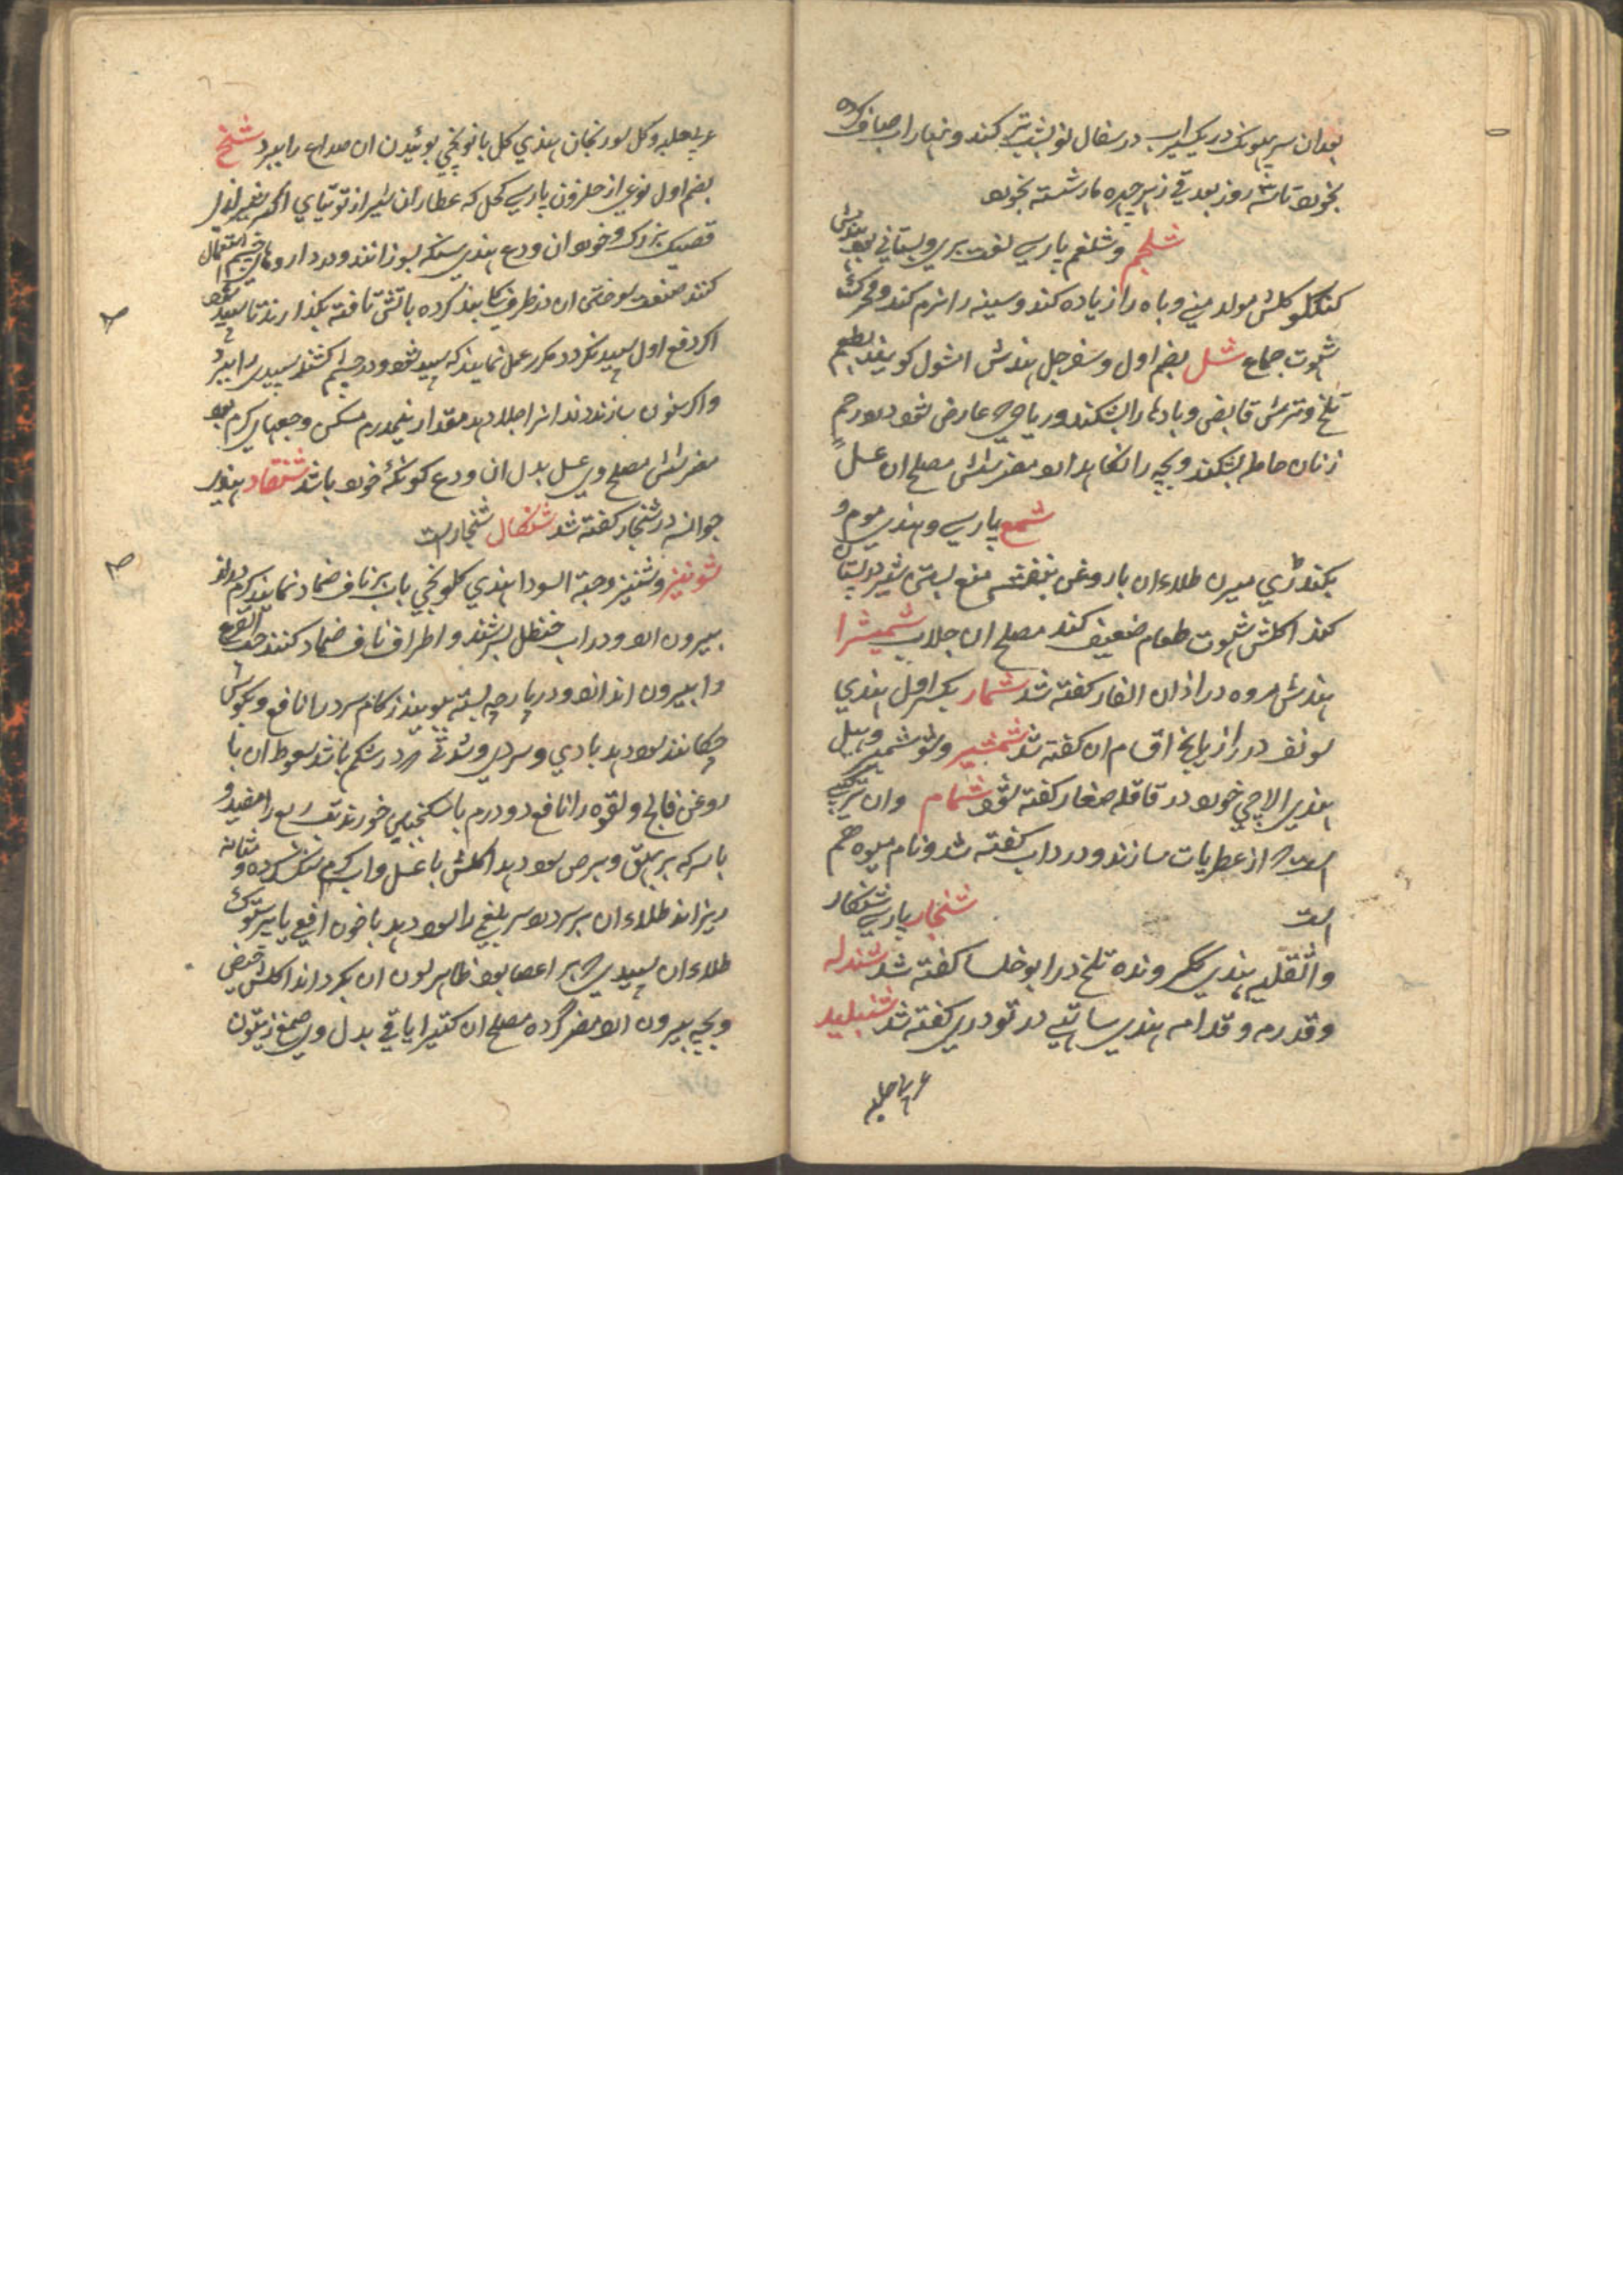 بعد ان سر بلوبک در یکسیر اب در سفال نو بشب تر کنند و نهار اب صاف کرده
بخورد تا سه روز بعد قی زیر جیره مار شسته بخورد
شلجم و شلغم پارسی لفت بری و بستانی بود هندش
کنکلو اکلش مولد منی و باه را زیاده کند و سینه را نرم کند و محرک
شهوت جماع شل بضم اول و سفرجل هندش اشول کویند بطعم
تلخ و ترش قابض و بادها را بشکند و ریاحی که عارض شود در رحم
زنان حامله بشکند و بچه را نگاهدارد مضر شش مصلح ان عسل
شمع پارسی و هندی موم و
بکندڑی میرن طلاء ان با روغن بنفشه منع بستن شیر در پستان
کند اکلش شهوت طعام ضعیف کند مصلح ان جلاب شمیشرا
هندش مروه در اذان الفار کفته شد شمار بکسر اول هندی
سونف در رازیانج اقسام ان کفته شد شمشیر و شوشمیر و هیل
هندی الاچی خورد در قاقله صغار کفته شود شمام وان ترکیب
است که از عطریات سازند و در داب کفته شد و نام میوه هم
است شنجار پارسی شنکار
وانقلیه هندی ککرونده تلخ در ابوخلسا کفته شد شندله
و قدرمه و قدامه هندی ساتی در تودری کفته شد شنبلید
عربی حلبه
عربی حلبه و کل سورنجان هندی کل بانونجی بوئیدن ان صداع را ببرد شنخ
بضم اول نوعی از حلزون پارسی کحل که عطاران شیراز توتیای اکبر
قصبک بزرک و خورد ان ودع هندی سنکه بسوزانند و در داروهای چشم استعمال
کنند صنعت سوختن ان در ظرف کلی بند کرده باتش تافته بکذارند تا سپید شود
اکر دفع اول سپید نکردد مکرر عمل نمایند که سپید شود و در چشم کشند سپیدی را ببرد
واکر سنون سازند دندانرا جلا دهد مقدار نیمدرم مسکن وجعهای کرم بود
مضر شش مصلح وی عسل بدل ان ودع کونکهٔ خورد باشد شنقاد هندی
جوانسه در شنجار کفته شد شنکال شنجارست
شونیز و شنیز و حبة السودا هندی کلونجی باب بر ناف ضماد نمایند کرم دراز
بیرون ارد و در اب حنظل بسرشند و اطراف ناف ضماد کنند حب القرع
را بیرون اندازد و در پارچه بسته بویند زکام سرد را نافع و بکوش
چکانند سود دهد بادی و سردی و سدتی که در شکم باشد سعوط ان با
روغن فالج و لقوه را نافع دو درم با سکنجبین خورند تب ربع را مفید و
با سرکه بر بهق و برص سود دهد اکلش با عسل و اب کرم سنک کرده و مثانه
ریزاند طلاء ان بر سر درد سر بلغمی را سود دهد با خون افعی یا پرستوک
طلاء ان سپیدی که بر اعضا بود ظاهر لون ان بکرداند اکلش حیض
و بچه بیرون ارد مضر کرده مصلح ان کتیرا باقی بدل وی صمغ زیتون